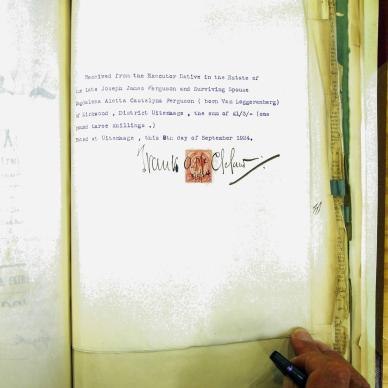 Received from the Executor Dative in the Estate of
the Late Joseph James Ferguson and Surviving Spouse
Magdalena Aletta Castelyna Ferguson ( born Van Leggerenberg)
of Kirkwood , District Uitenhage , the sum of £1/3/- (one
pound three shillings .)
Dated at Uitenhage , this 8th day of September 1924.